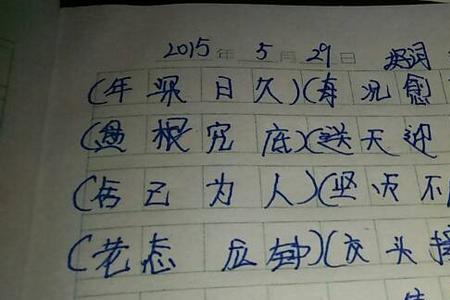 2015年 5月 29日 好词
(年深日久)(每况愈
(盘根究底)(送天迎
(舍己为人)(坚贞不
(老态 瓜钟)(交头接